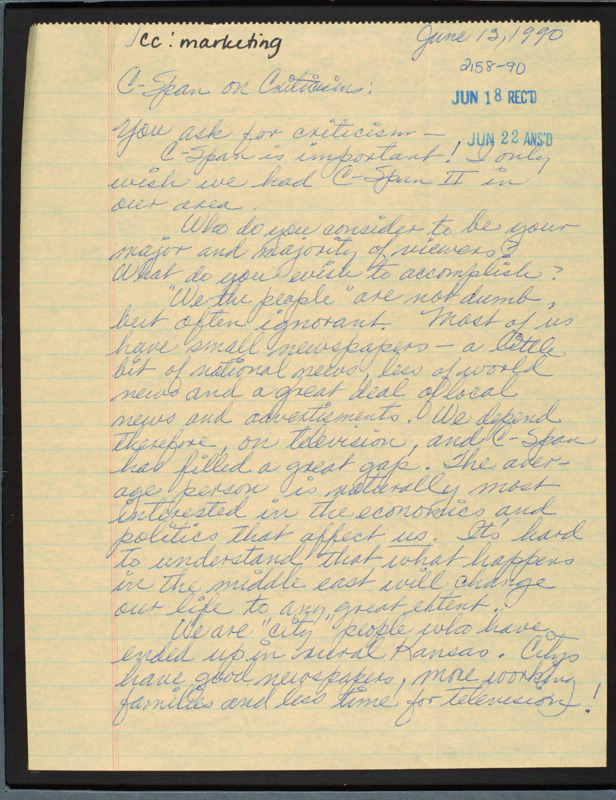 cc: marketing
June 13, 1990
2158-90
C-Span on Criticisms:
JUN 18 REC'D
You ask for criticism —
JUN 22 ANS'D
C-Span is important! I only
wish we had C-Span II in
our area.
Who do you consider to be your
major and majority of viewers?
What do you wish to accomplish?
"We the people" are not dumb,
but often ignorant. Most of us
have small newspapers — a little
bit of national news, less of world
news and a great deal of local
news and advertisments. We depend
therefore, on television, and C-Span
has filled a great gap. The aver-
age person is naturally most
interested in the economics and
politics that affect us. Its hard
to understand that what happens
in the middle east will change
our life to any great extent.
We are "city" people who have
ended up in rural Kansas. Citys
have good newspapers, more working
families and less time for television!